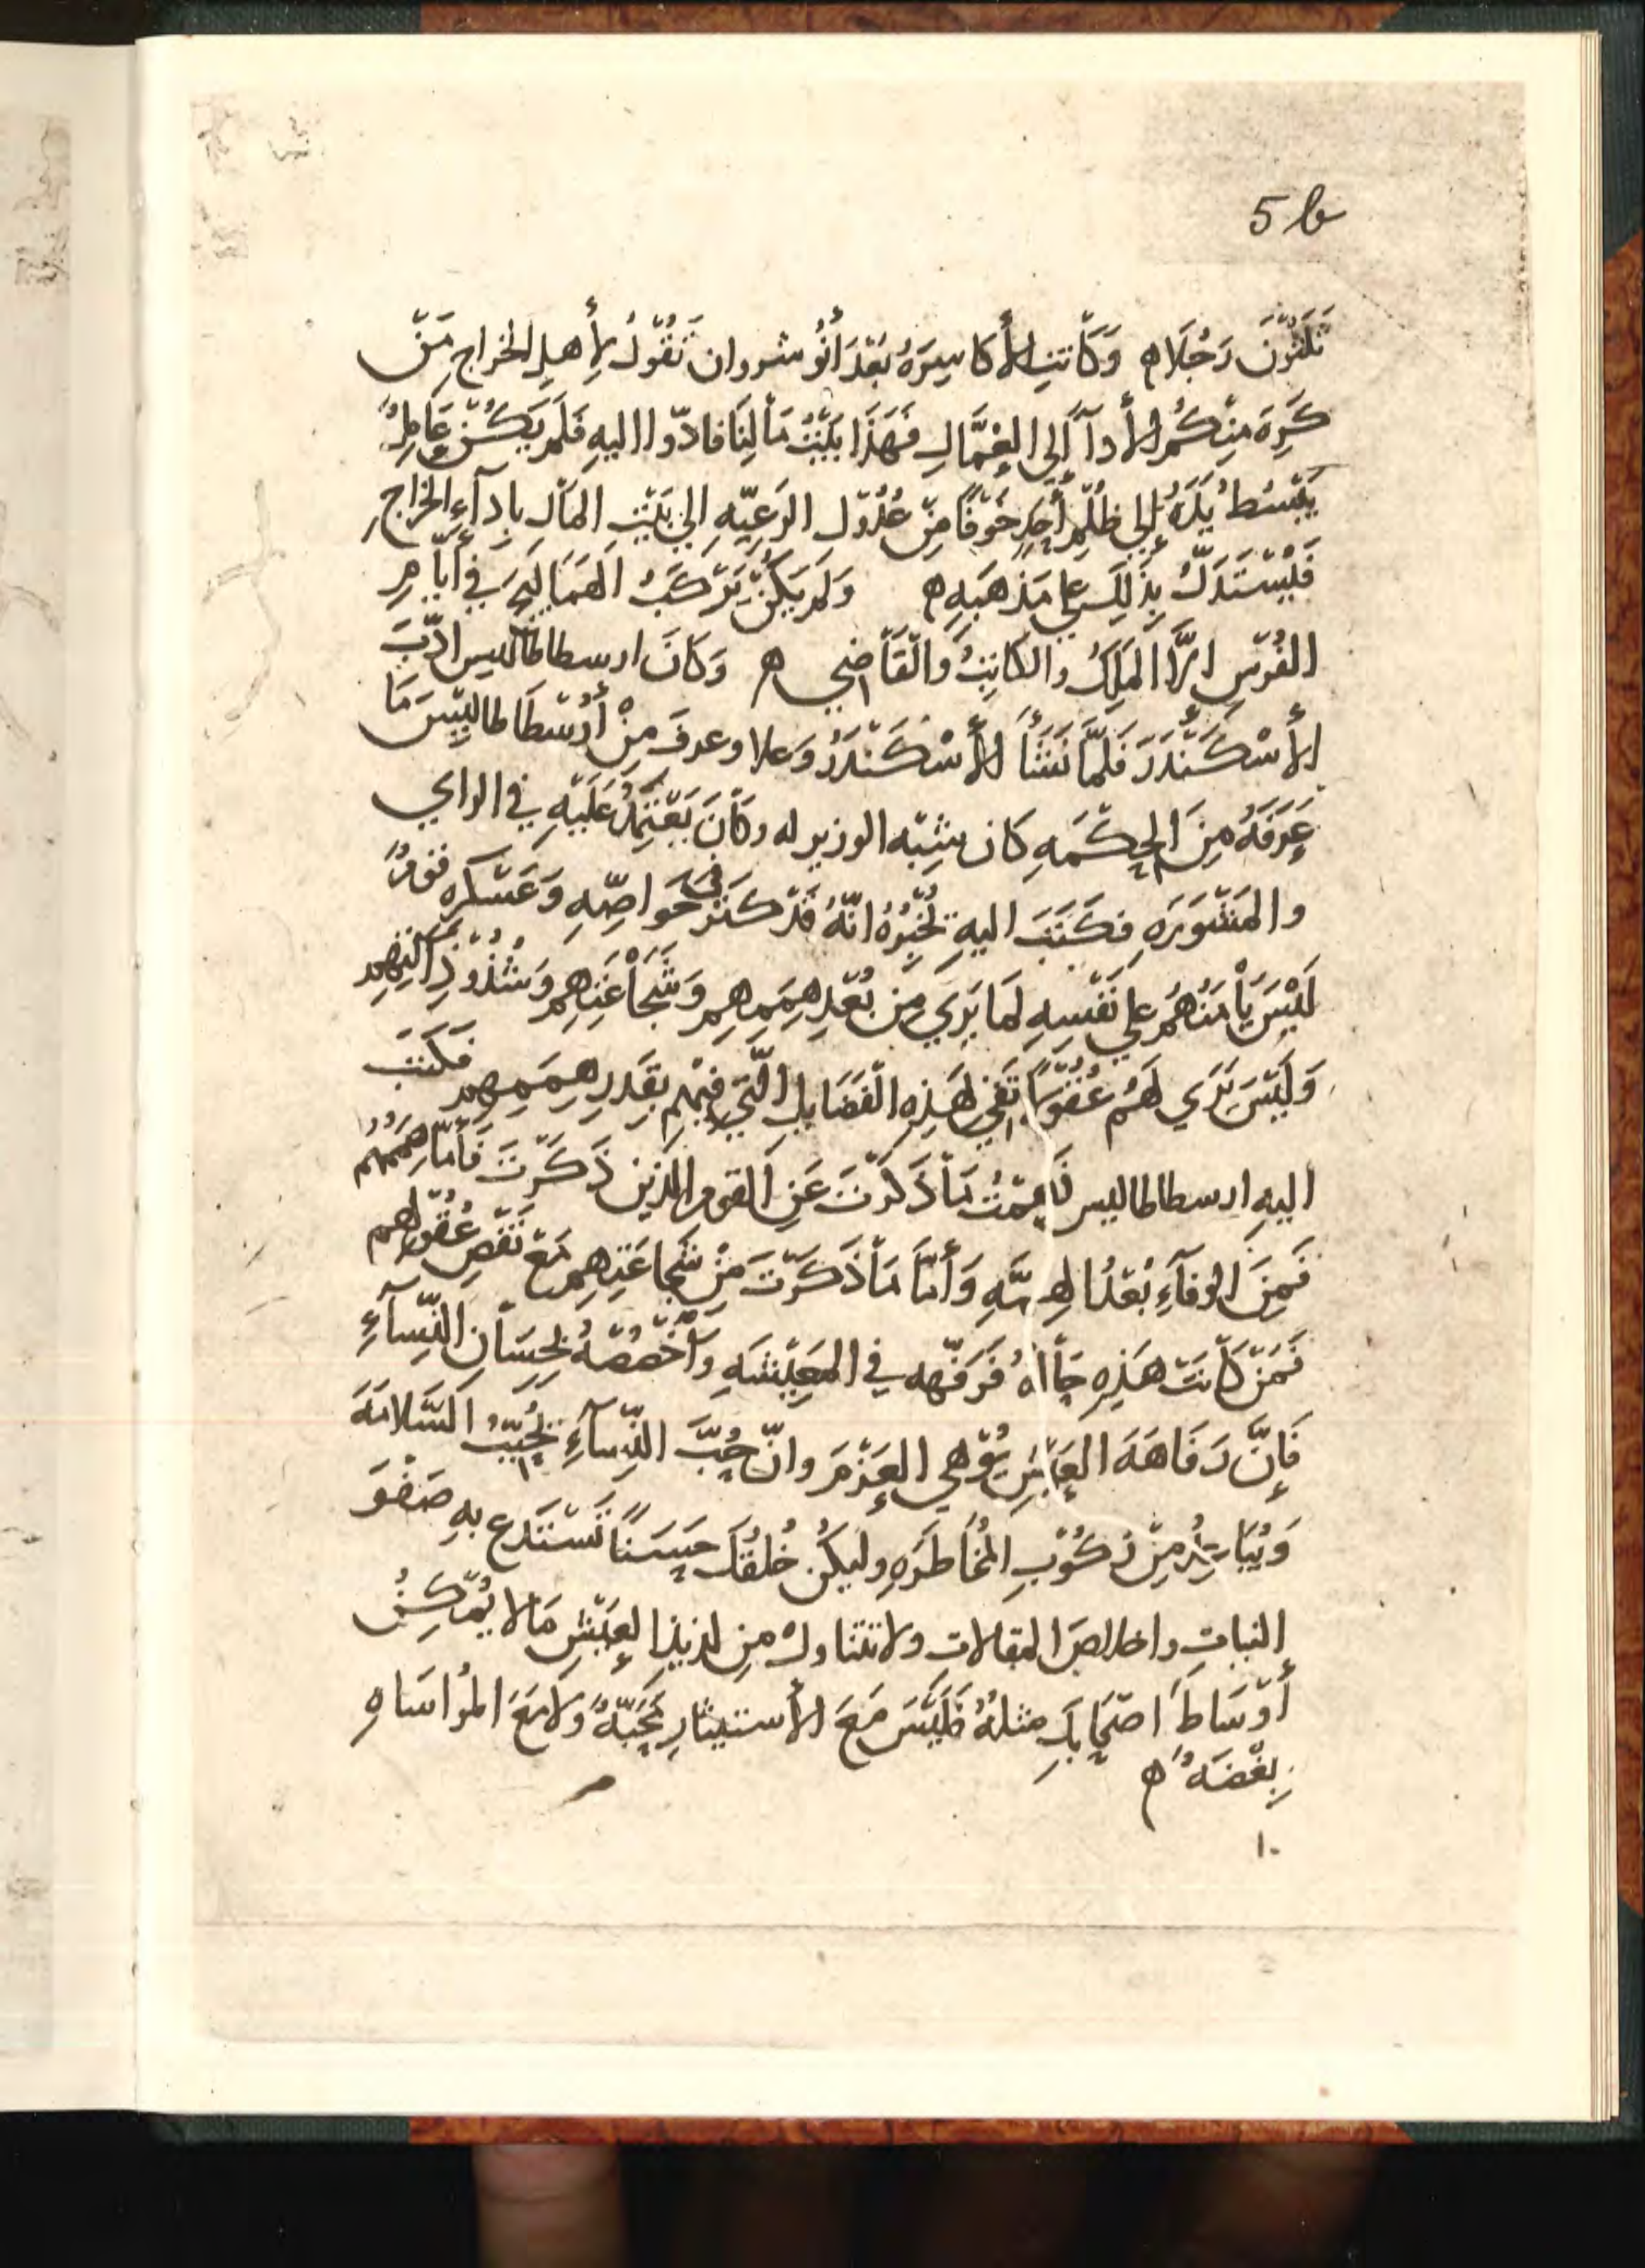 5b
ثلثون رجلا ه وكانت الأكاسره بعد أنوشروان تقول لأهل الخراج من
كره منكم الأدآ إلى العمّال فهذا بيت مالنا فادّوا اليه فلم يكن عامل
يبسط يده إلى ظلم أحد خوفًا من عدول الرعيّه الى بيت المال بادآء الخراج
فيستدلّ بذلك على مذهبه ه ولم يكن يركب الهماليج في أيّام
الفرس الّا الملك والكاتب والقاضي ه وكان ارسطاطاليس ادّب
الأسكندر فلمّا نشأ الأسكندر وعلا وعرف من أرسطاطاليس ما
عرفه من الحكمه كان شبه الوزير له وكان يعتمد عليه في الراي
والمشوره فكتب اليه يخبره انّه قد كثر في خواصّه وعسكره قوم
ليس يأمنهم على نفسه لما يرى من بعد هممهم وشجاعتهم وشذوذ آلتهم
وليس يرى لهم عقولًا تفي بهذه الفضايل الّتي فيهم بقدر هممهم فكتب
اليه ارسطاطاليس فهمت ما ذكرت عن القوم الذين ذكرت فأمّا هممهم
فمن الوفآء بعد الهمّه وأمّا ما ذكرت من شجاعتهم مع نقص عقولهم
فمن كانت هذه حاله فرفّهه في المعيشه واخصصه بحسان النّسآء
فإنّ رفاهة العيش يوهي العزم وانّ حبّ النّسآء يحبّب السّلامة
ويباعد من ركوب المخاطره وليكن خلقك حسنًا تستدع به صفو
النيات واخلاص المقالات ولا تتناول من لذيذ العيش مالا يمكن
أوساط اصحابك مثله فليس مع الأستيثار محبّة ولا مع المواساه
بغضة ه
١٠